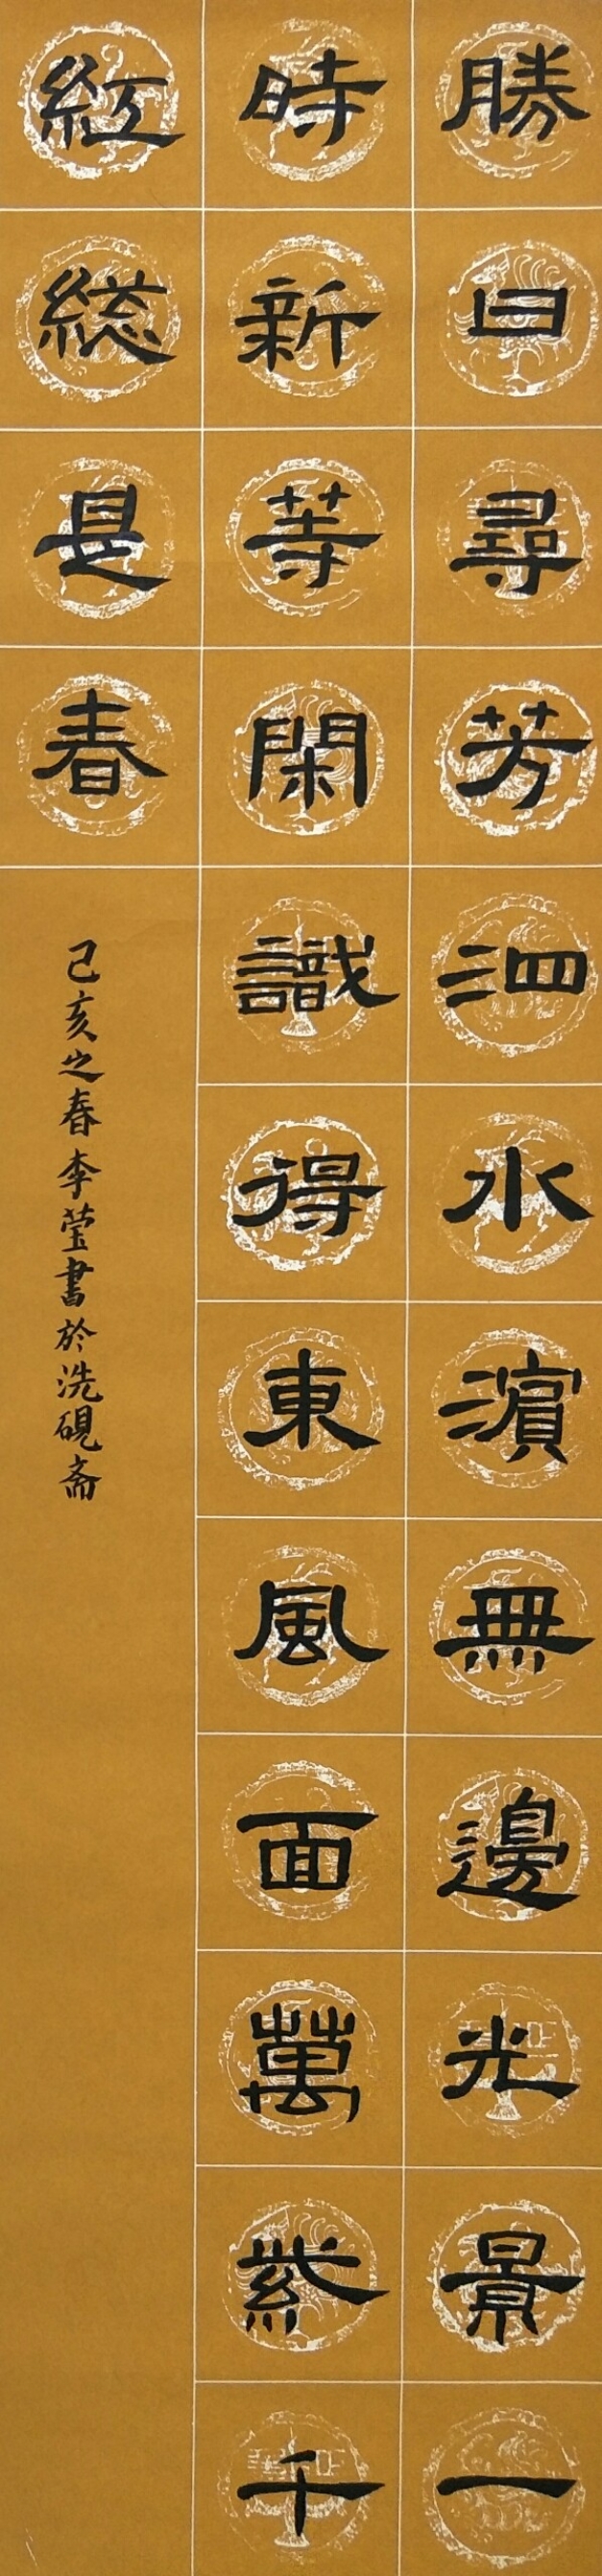 勝日尋芳泗水濱無邊光景一
時新等閑識得東風面萬紫千
紅総是春
己亥之春李莹書於洗硯斋